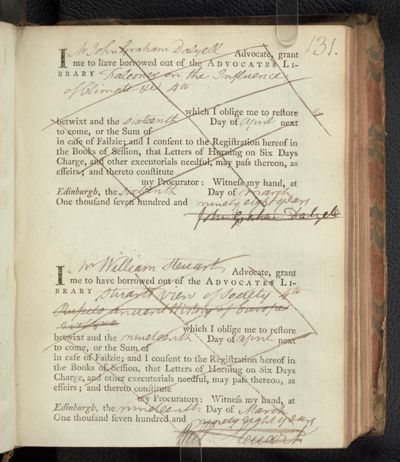 131.
I Mr John Graham Dalyell Advocate, grant
me to have borrowed out of the ADVOCATES LI-
BRARY Falconer on the Influence
of Climate &c 4to
which I oblige me to reſtore
betwixt and the sixteenth Day of April next
to come, or the Sum of
in caſe of Failzie; and I conſent to the Regiſtration hereof in
the Books of Seſſion, that Letters of Horning on Six Days
Charge, and other executorials needful, may paſs thereon, as
effeirs; and thereto conſtitute
my Procurator: Witneſs my hand, at
Edinburgh, the sixteenth Day of March
One thouſand ſeven hundred and ninety eight years
John Graham Dalyell
I Mr William Steuart Advocate, grant
me to have borrowed out of the ADVOCATES LI-
BRARY Stuarts View of Society 4to
History of Europe
which I oblige me to reſtore
betwixt and the nineteenth Day of April next
to come, or the Sum of
in caſe of Failzie; and I conſent to the Regiſtration hereof in
the Books of Seſſion, that Letters of Horning on Six Days
Charge, and other executorials needful, may paſs thereon, as
effeirs; and thereto conſtitute
my Procurators: Witneſs my hand, at
Edinburgh, the nineteenth Day of March
One thouſand ſeven hundred and ninety eight years
Steuart